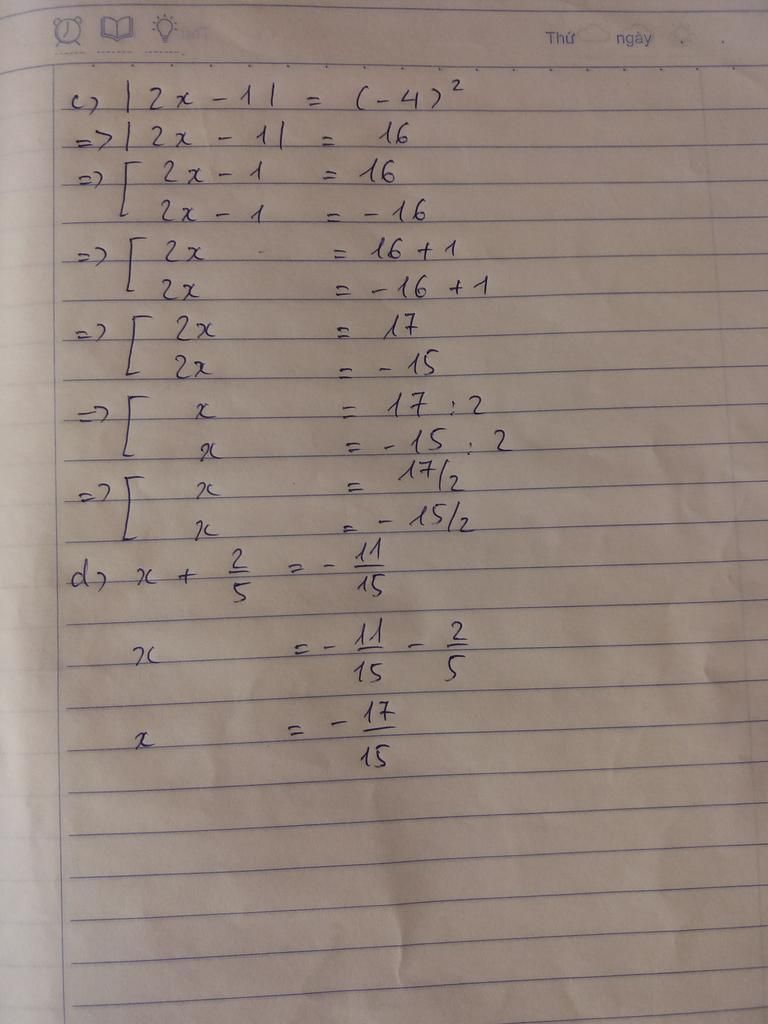 Thứ ngày . .
c) | 2x - 1 | = (-4)²
=> | 2x - 1 | = 16
=> [ 2x - 1 = 16
2x - 1 = - 16
=> [ 2x = 16 + 1
2x = - 16 + 1
=> [ 2x = 17
2x = - 15
=> [ x = 17 : 2
x = - 15 : 2
=> [ x = 17/2
x = - 15/2
d) x + 2/5 = - 11/15
x = - 11/15 - 2/5
x = - 17/15